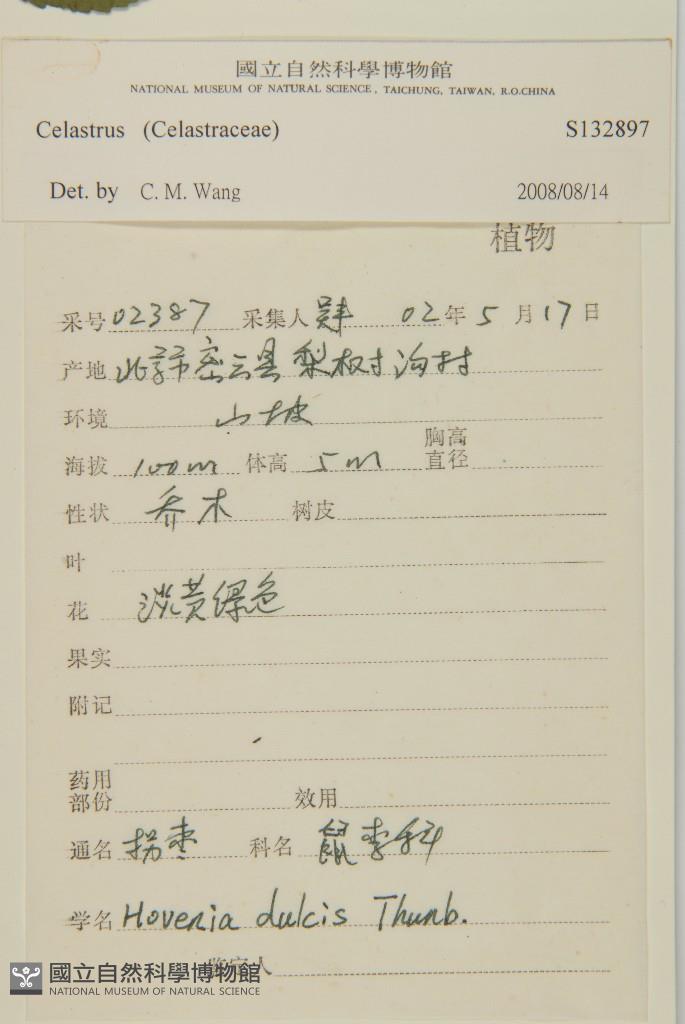 國立自然科學博物館
NATIONAL MUSEUM OF NATURAL SCIENCE, TAICHUNG, TAIWAN, R.O.CHINA
Celastrus (Celastraceae) S132897
Det. by C. M. Wang 2008/08/14
植物
采号 02387 采集人 02年 5月 17日
产地 北京市密云县梨树沟村
环境 山坡
海拔 100m 体高 5m 胸高直径
性状 乔木 树皮
叶
花 淡黄绿色
果实
附记
药用部份 效用
通名 拐枣 科名 鼠李科
学名 Hovenia dulcis Thunb.
鉴定人
國立自然科學博物館
NATIONAL MUSEUM OF NATURAL SCIENCE